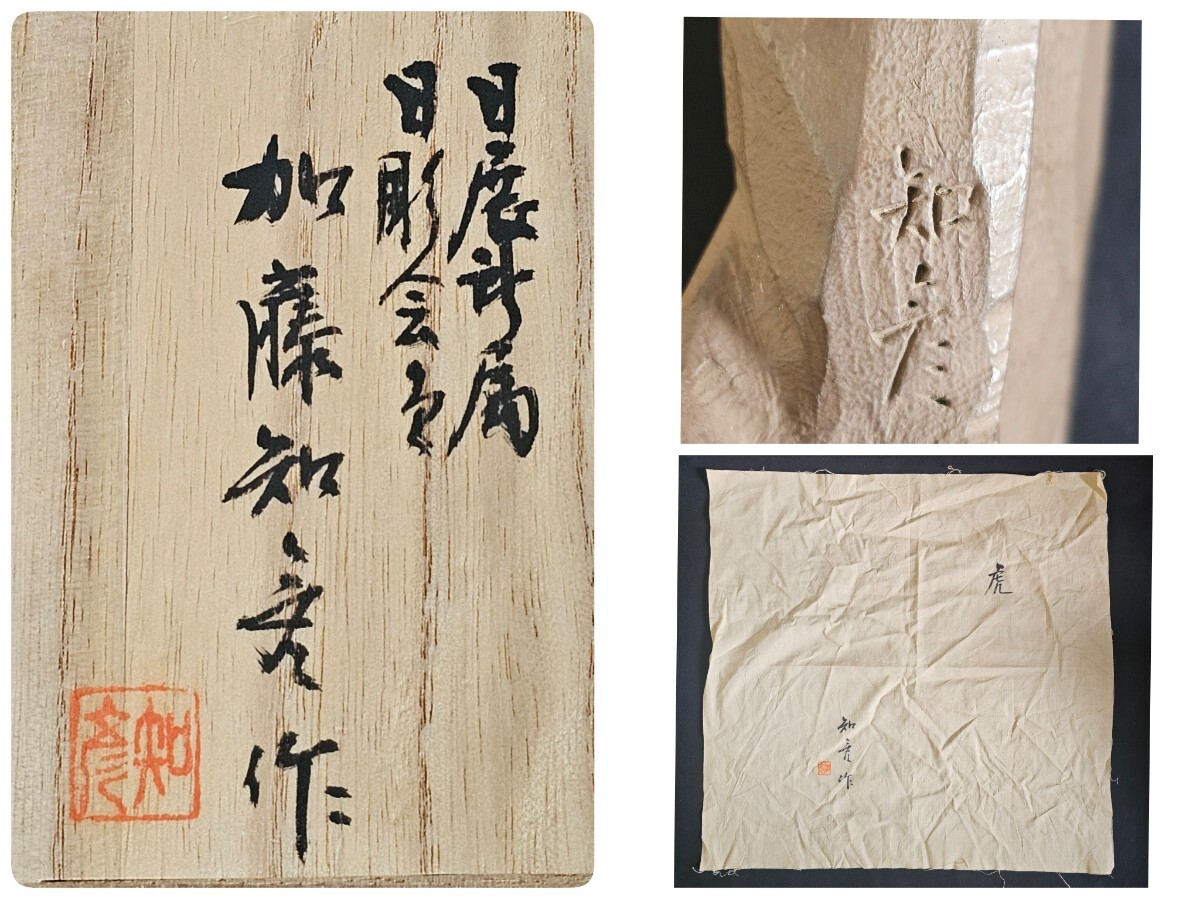 日展所属
日彫会員
加藤知彦作
知彦
知彦
虎
知彦作